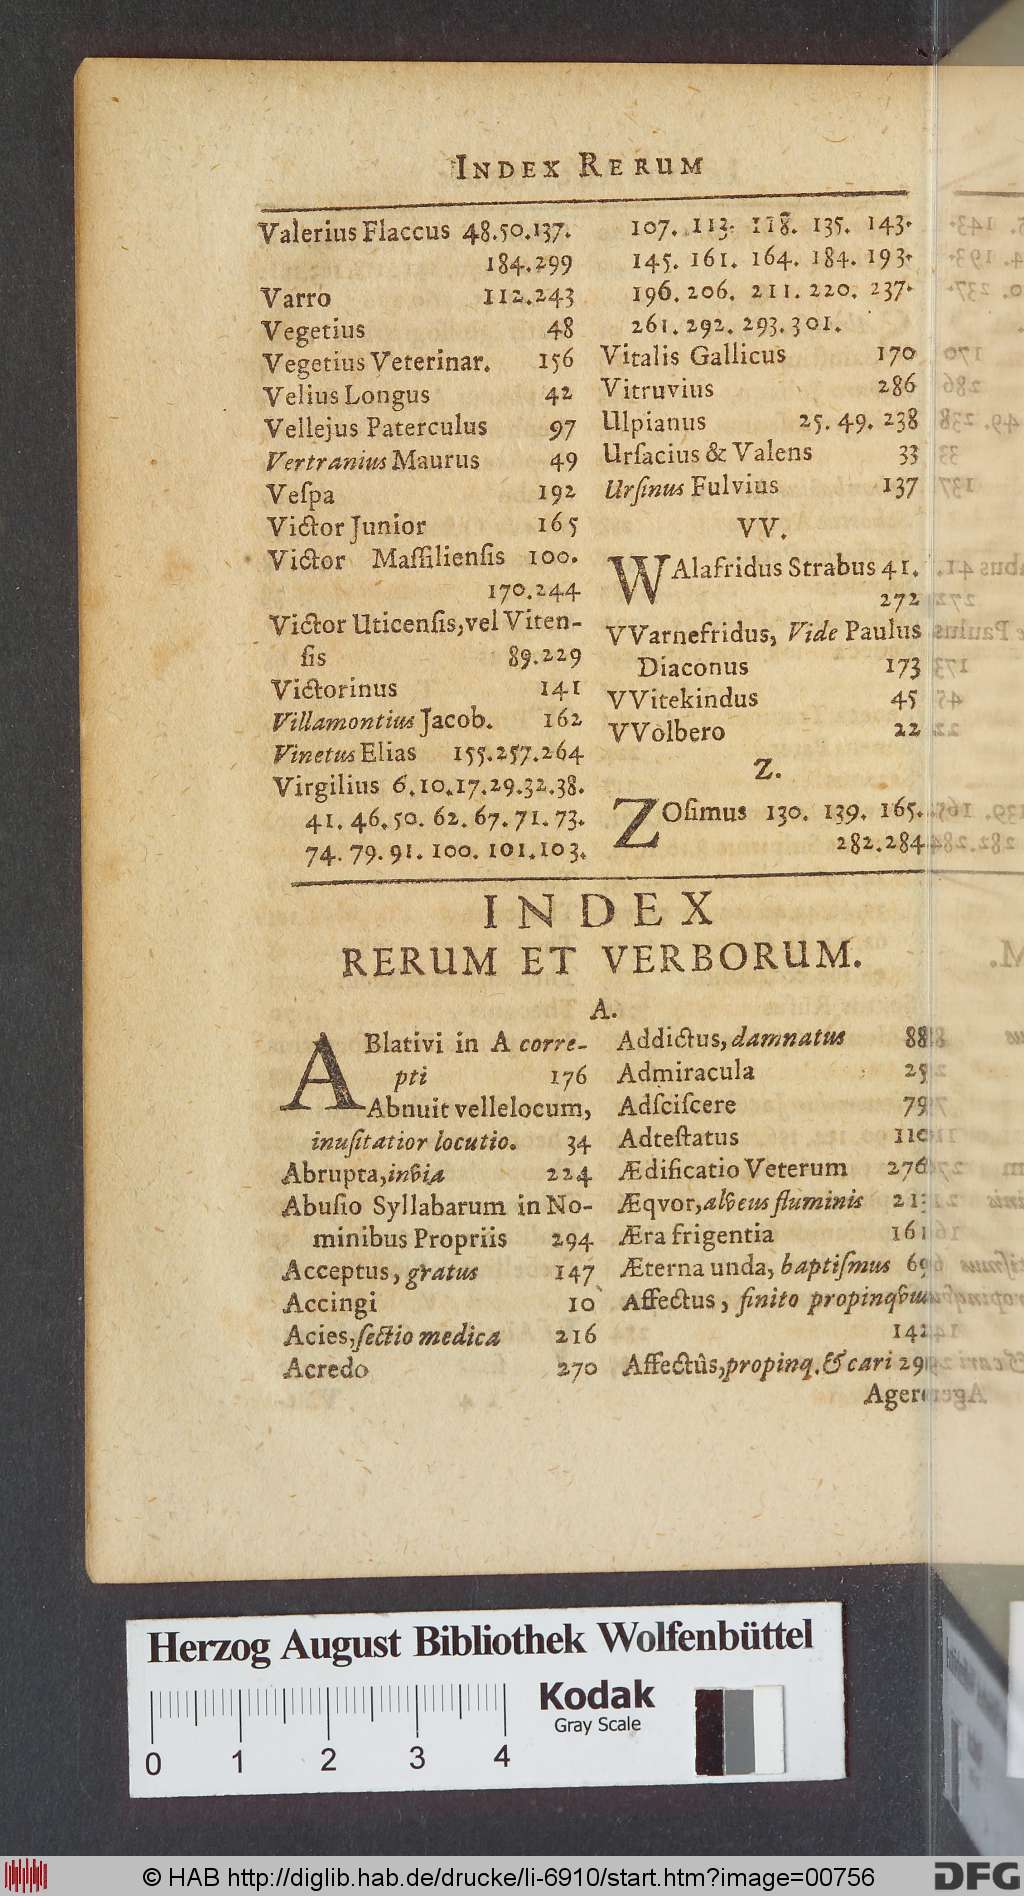 INDEX RERUM
Valerius Flaccus 48.50.137.
184.299
Varro 112.243
Vegetius 48
Vegetius Veterinar. 156
Velius Longus 42
Vellejus Paterculus 97
Vertranius Maurus 49
Veſpa 192
Victor Junior 165
Victor Maſſilienſis 100.
170.244
Victor Uticenſis, vel Viten-
ſis 89.229
Victorinus 141
Villamontius Jacob. 162
Vinetus Elias 155.257.264
Virgilius 6.10.17.29.32.38.
41. 46. 50. 62. 67. 71. 73.
74. 79. 91. 100. 101. 103.
107. 113. 118. 135. 143.
145. 161. 164. 184. 193.
196. 206. 211. 220. 237.
261. 292. 293. 301.
Vitalis Gallicus 170
Vitruvius 286
Ulpianus 25. 49. 238
Urſacius & Valens 33
Urſinus Fulvius 137
VV.
WAlafridus Strabus 41.
272
VVarnefridus, Vide Paulus
Diaconus 173
VVitekindus 45
VVolbero 22
Z.
ZOſimus 130. 139. 165.
282.284
INDEX
RERUM ET VERBORUM.
A.
ABlativi in A corre-
pti 176
Abnuit vellelocum,
inuſitatior locutio. 34
Abrupta, invia 224
Abuſio Syllabarum in No-
minibus Propriis 294
Acceptus, gratus 147
Accingi 10
Acies, ſectio medica 216
Acredo 270
Addictus, damnatus 88
Admiracula 25
Adſciſcere 79
Adteſtatus 110
Ædificatio Veterum 276
Æqvor, alveus fluminis
Æra frigentia 161
Æterna unda, baptiſmus 69
Affectus, finito propinqvum
142
Affectûs, propinq. & cari
Agere
Herzog August Bibliothek Wolfenbüttel
Kodak
Gray Scale
0 1 2 3 4
© HAB http://diglib.hab.de/drucke/li-6910/start.htm?image=00756
DFG